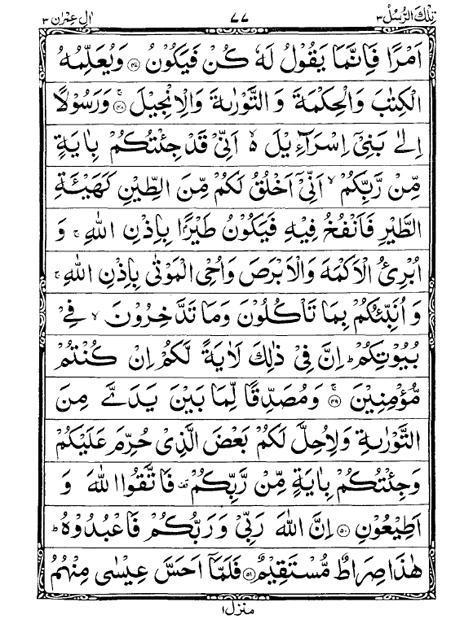 تِلْكَ الرُّسُلُ ٣ ٧٧ اٰلِ عِمْرٰن ٣
اَمْرًا فَاِنَّمَا يَقُوْلُ لَهٗ كُنْ فَيَكُوْنُ ۝٤٧ وَيُعَلِّمُهُ
الْكِتٰبَ وَالْحِكْمَةَ وَ التَّوْرٰىةَ وَالْاِنْجِيْلَ ۝٤٨ وَرَسُوْلًا
اِلٰى بَنِيْٓ اِسْرَآءِيْلَ ەۙ اَنِّيْ قَدْ جِئْتُكُمْ بِاٰيَةٍ
مِّنْ رَّبِّكُمْ ۙ اَنِّيْٓ اَخْلُقُ لَكُمْ مِّنَ الطِّيْنِ كَهَيْئَةِ
الطَّيْرِ فَاَنْفُخُ فِيْهِ فَيَكُوْنُ طَيْرًا بِاِذْنِ اللّٰهِ ۚ وَ
اُبْرِئُ الْاَكْمَهَ وَالْاَبْرَصَ وَاُحْيِ الْمَوْتٰى بِاِذْنِ اللّٰهِ ۚ
وَ اُنَبِّئُكُمْ بِمَا تَاْكُلُوْنَ وَمَا تَدَّخِرُوْنَ ۙ فِيْ
بُيُوْتِكُمْ ؕ اِنَّ فِيْ ذٰلِكَ لَاٰيَةً لَّكُمْ اِنْ كُنْتُمْ
مُّؤْمِنِيْنَ ۝٤٩ وَمُصَدِّقًا لِّمَا بَيْنَ يَدَيَّ مِنَ
التَّوْرٰىةِ وَلِاُحِلَّ لَكُمْ بَعْضَ الَّذِيْ حُرِّمَ عَلَيْكُمْ
وَجِئْتُكُمْ بِاٰيَةٍ مِّنْ رَّبِّكُمْ فَاتَّقُوا اللّٰهَ وَ
اَطِيْعُوْنِ ۝٥٠ اِنَّ اللّٰهَ رَبِّيْ وَرَبُّكُمْ فَاعْبُدُوْهُ ؕ
هٰذَا صِرَاطٌ مُّسْتَقِيْمٌ ۝٥١ فَلَمَّآ اَحَسَّ عِيْسٰى مِنْهُمُ
منزل ١